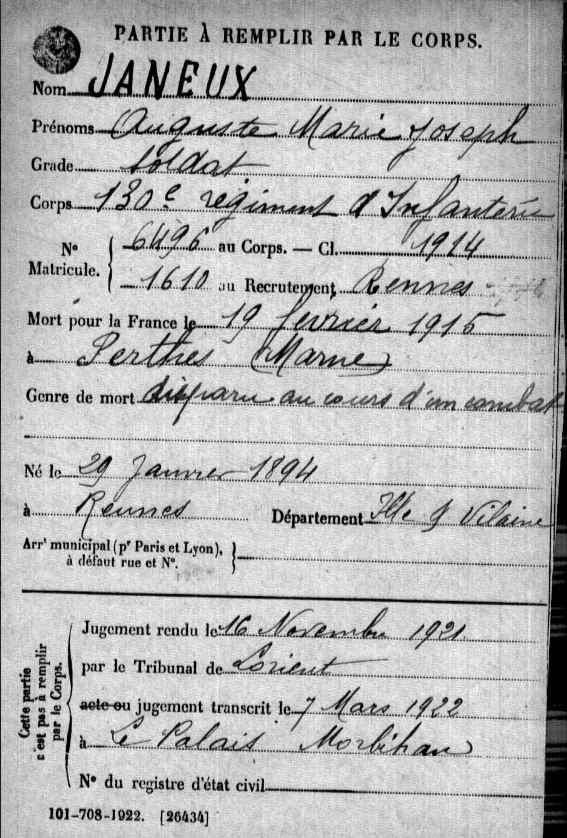 PARTIE À REMPLIR PAR LE CORPS.
Nom JANEUX
Prénoms Auguste Marie Joseph
Grade Soldat
Corps 130e régiment d'Infanterie
N° Matricule. 6496 au Corps. — Cl. 1914
1610 au Recrutement Rennes
Mort pour la France le 19 février 1915
à Perthes (Marne)
Genre de mort disparu au cours d'un combat
Né le 29 Janvier 1894
à Rennes Département Ille & Vilaine
Arrt municipal (pr Paris et Lyon),
à défaut rue et N°.
Cette partie n'est pas à remplir par le Corps.
Jugement rendu le 16 Novembre 1921
par le Tribunal de Lorient
acte ou jugement transcrit le 7 Mars 1922
à Le Palais Morbihan
N° du registre d'état civil
101-708-1922. [26434]